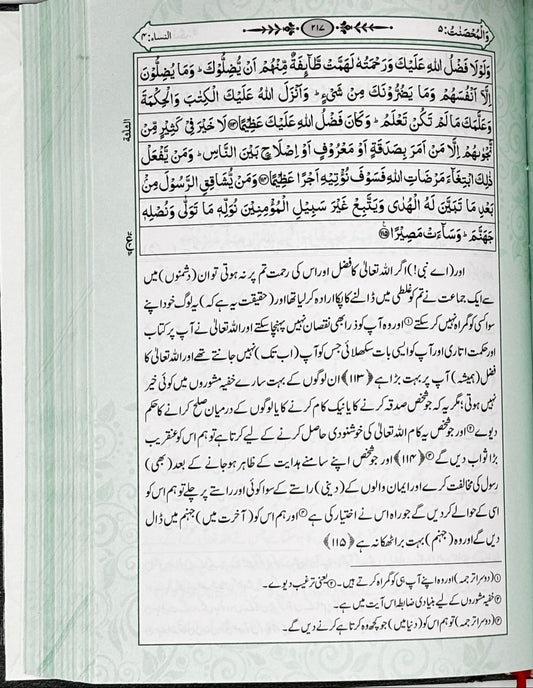 وَالْمُحْصَنٰتُ: ۵
۲۱۷
النساء: ۴
وَلَوْلَا فَضْلُ اللّٰهِ عَلَيْكَ وَرَحْمَتُهٗ لَهَمَّتْ طَّآئِفَةٌ مِّنْهُمْ اَنْ يُّضِلُّوْكَ ؕ وَمَا يُضِلُّوْنَ
اِلَّاۤ اَنْفُسَهُمْ وَمَا يَضُرُّوْنَكَ مِنْ شَيْءٍ ؕ وَاَنْزَلَ اللّٰهُ عَلَيْكَ الْكِتٰبَ وَالْحِكْمَةَ
وَعَلَّمَكَ مَا لَمْ تَكُنْ تَعْلَمُ ؕ وَكَانَ فَضْلُ اللّٰهِ عَلَيْكَ عَظِيْمًا ﴿۱۱۳﴾ لَا خَيْرَ فِيْ كَثِيْرٍ مِّنْ
نَّجْوٰىهُمْ اِلَّا مَنْ اَمَرَ بِصَدَقَةٍ اَوْ مَعْرُوْفٍ اَوْ اِصْلَاحٍۭ بَيْنَ النَّاسِ ؕ وَمَنْ يَّفْعَلْ
ذٰلِكَ ابْتِغَآءَ مَرْضَاتِ اللّٰهِ فَسَوْفَ نُؤْتِيْهِ اَجْرًا عَظِيْمًا ﴿۱۱۴﴾ وَمَنْ يُّشَاقِقِ الرَّسُوْلَ مِنْۢ
بَعْدِ مَا تَبَيَّنَ لَهُ الْهُدٰى وَيَتَّبِعْ غَيْرَ سَبِيْلِ الْمُؤْمِنِيْنَ نُوَلِّهٖ مَا تَوَلّٰى وَنُصْلِهٖ
جَهَنَّمَ ؕ وَسَآءَتْ مَصِيْرًا ﴿۱۱۵﴾
اور (اے نبی!) اگر اللہ تعالیٰ کا فضل اور اس کی رحمت تم پر نہ ہوتی تو ان (دشمنوں) میں
سے ایک جماعت نے تم کو غلطی میں ڈالنے کا پکا ارادہ کر لیا تھا اور (حقیقت یہ ہے کہ) یہ لوگ خود اپنے
سوا کسی کو گمراہ نہیں کر سکتے ① اور وہ آپ کو ذرا بھی نقصان نہیں پہنچا سکتے اور اللہ تعالیٰ نے آپ پر کتاب
اور حکمت اتاری اور آپ کو ایسی بات سکھلائی جس کو آپ (اب تک) نہیں جانتے تھے اور اللہ تعالیٰ کا
فضل (ہمیشہ) آپ پر بہت بڑا ہے ﴿۱۱۳﴾ ان لوگوں کے بہت سارے خفیہ مشوروں میں کوئی خیر
نہیں ہوتی؛ مگر یہ کہ جو شخص صدقہ کرنے کا یا نیک کام کرنے کا یا لوگوں کے درمیان صلح کرانے کا حکم
دیوے ② اور جو شخص یہ کام اللہ تعالیٰ کی خوشنودی حاصل کرنے کے لیے کرتا ہے تو ہم اس کو عنقریب
بڑا ثواب دیں گے ③ ﴿۱۱۴﴾ اور جو شخص اپنے سامنے ہدایت کے ظاہر ہو جانے کے بعد (بھی)
رسول کی مخالفت کرے اور ایمان والوں کے (دینی) راستے کے سوا کوئی اور راستے پر چلے تو ہم اس کو
اسی کے حوالے کر دیں گے جو راہ اس نے اختیار کی ہے ④ اور ہم اس کو (آخرت میں) جہنم میں ڈال
دیں گے اور وہ (جہنم) بہت برا ٹھکانہ ہے ﴿۱۱۵﴾
① (دوسرا ترجمہ) اور وہ اپنے آپ ہی کو گمراہ کرتے ہیں۔ ② یعنی ترغیب دیوے۔
③ خفیہ مشوروں کے لیے بنیادی ضابطہ اس آیت میں ہے۔
④ (دوسرا ترجمہ) تو ہم اس کو (دنیا میں) جو کچھ وہ کرتا ہے کرنے دیں گے۔